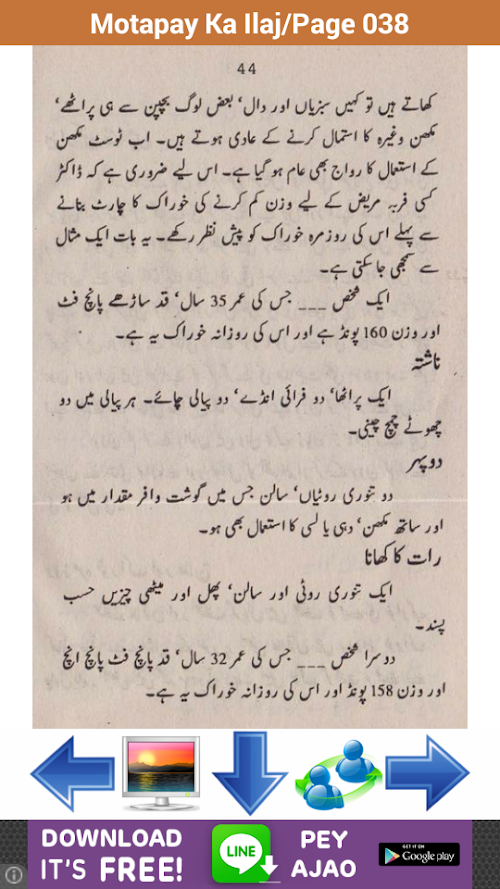 Motapay Ka Ilaj/Page 038
44
کھاتے ہیں تو کہیں سبزیاں اور دال، بعض لوگ بچپن سے ہی پراٹھے،
مکھن وغیرہ کا استمال کرنے کے عادی ہوتے ہیں۔ اب ٹوسٹ مکھن
کے استعمال کا رواج بھی عام ہو گیا ہے۔ اس لیے ضروری ہے کہ ڈاکٹر
کسی فربہ مریض کے لیے وزن کم کرنے کی خوراک کا چارٹ بنانے
سے پہلے اس کی روزمرہ خوراک کو پیش نظر رکھے۔ یہ بات ایک مثال
سے سمجھی جا سکتی ہے۔
ایک شخص ___ جس کی عمر 35 سال، قد ساڑھے پانچ فٹ
اور وزن 160 پونڈ ہے اور اس کی روزانہ خوراک یہ ہے۔
ناشتہ
ایک پراٹھا، دو فرائی انڈے، دو پیالی چائے۔ ہر پیالی میں دو
چھوٹے چمچ چینی۔
دوپہر
دو تنوری روٹیاں، سالن جس میں گوشت وافر مقدار میں ہو
اور ساتھ مکھن، دہی یا لسی کا استعمال بھی ہو۔
رات کا کھانا
ایک تنوری روٹی اور سالن، پھل اور میٹھی چیزیں حسب
پسند۔
دوسرا شخص ___ جس کی عمر 32 سال، قد پانچ فٹ پانچ انچ
اور وزن 158 پونڈ اور اس کی روزانہ خوراک یہ ہے۔
DOWNLOAD
IT'S FREE!
LINE
PEY
AJAO
GET IT ON
Google play